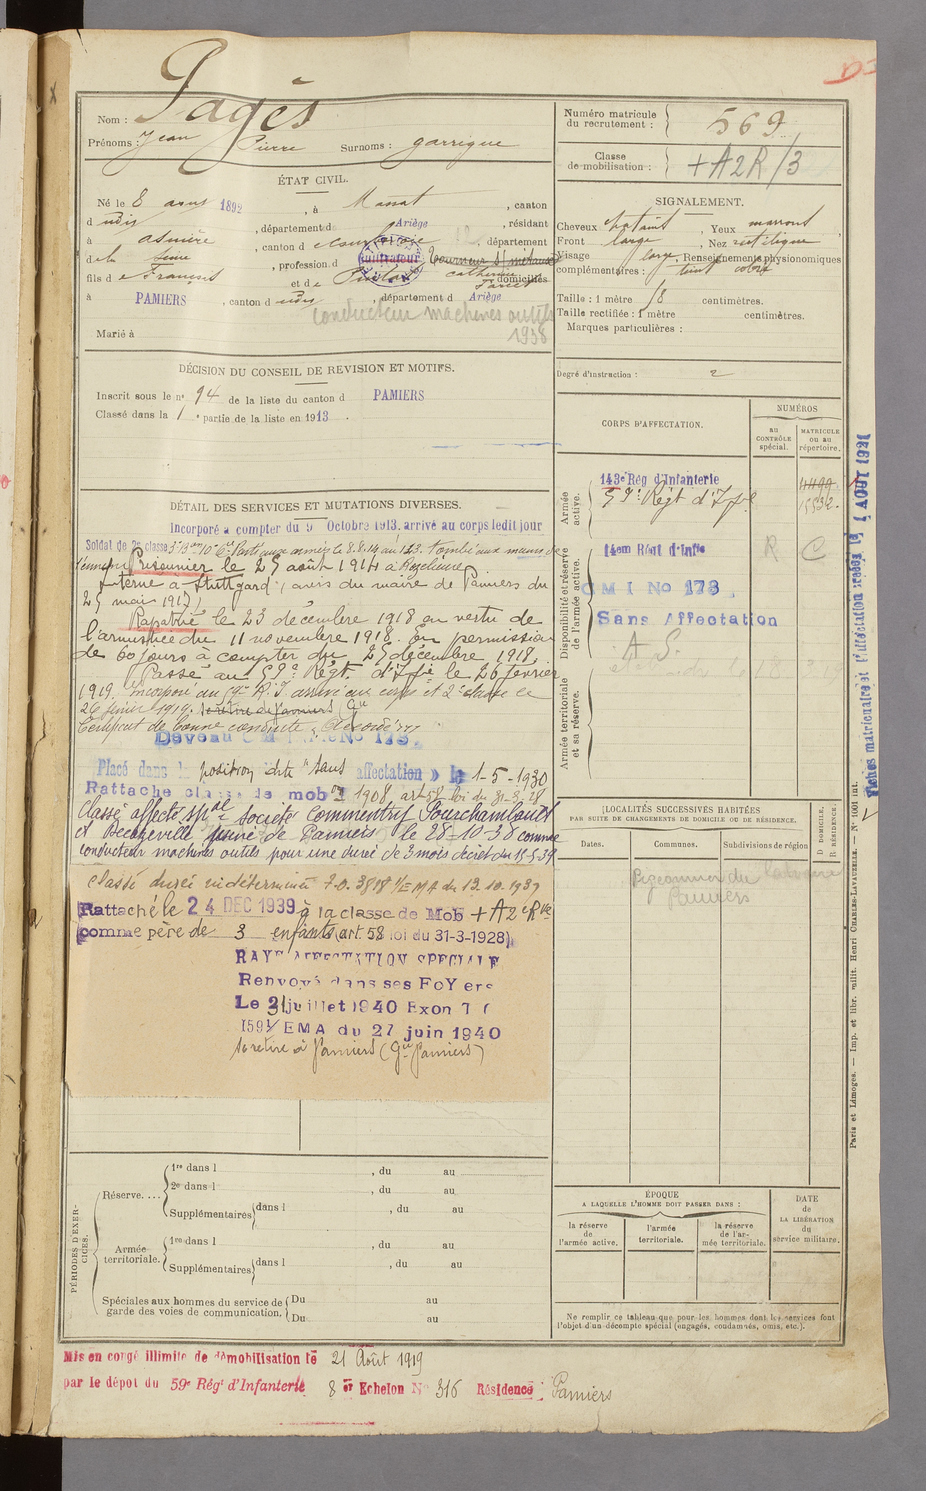 Nom : Pagès
Prénoms : Jean Pierre Surnoms : garrigue
ÉTAT CIVIL.
Né le 8 1892, à Massat, canton
d udit, département d Ariège, résidant
à asnière, canton d e courbevoie, département
d e la Seine, profession d cultivateur Tourneur s/ métaux
fils d e François et d e catherine domiciliés
à PAMIERS, canton d udit, département d Ariège
conducteur machines outils
1938
Marié à
DÉCISION DU CONSEIL DE REVISION ET MOTIFS.
Inscrit sous le n° 94 de la liste du canton d PAMIERS
Classé dans la 1 e partie de la liste en 1913.
DÉTAIL DES SERVICES ET MUTATIONS DIVERSES.
Incorporé a compter du 9 Octobre 1913, arrivé au corps ledit jour
Soldat de 2e classe Parti aux armées le 8.8.14 au 143. Tombé aux mains de
l'ennemi Prisonnier le 25 août 1914 à Rozelieures
Interné à Stuttgard, avis du maire de Pamiers du
25 mai 1917)
Rapatrié le 23 décembre 1918 en vertu de
l'armistice du 11 novembre 1918. en permission
de 60 jours à compter du 25 décembre 1918.
Passé au 59e Régt. d'Ifie le 26 février
1919. Incorporé au 59e R.I. arrivé aux corps et 2e classe ce
26 février 1919. se retire à Pamiers
Certificat de bonne conduite : Accordé
Devenu C M I No 173.
Placé dans la position dite "sans affectation" le 1-5-1930
Rattaché classe de mob on 1908 art 58 loi du 31-3-28
Classé affecté spal Société Commentry Fourchambault
et Decazeville usine de Pamiers le 28-10-38 comme
conducteur machines outils pour une durée de 3 mois décret du 15.5.39
classé durée indéterminée 7.0. 3818 1/EMA du 13.10.1939
Rattaché le 24 DEC 1939 à la classe de Mob + A2eRve
comme père de 3 enfants (art. 58 loi du 31-3-1928)
RAYÉ AFFECTATION SPECIALE
Renvoyé dans ses FoYers
Le 21 juillet 1940 Exon
1591/EMA du 27 juin 1940
se retire à Pamiers (Gie Pamiers)
PÉRIODES D'EXERCICES.
Réserve....
1re dans l , du au
2e dans l , du au
Supplémentaires dans l , du au
Armée territoriale.
1re dans l , du au
Supplémentaires dans l , du au
Spéciales aux hommes du service de garde des voies de communication.
Du au
Du au
Mis en congé illimité de démobilisation le 21 Août 1919
par le dépot du 59e Régt d'Infanterie 8 er Echelon No 316 Résidence : Pamiers
Numéro matricule du recrutement : 569
Classe de mobilisation : + A2R/3
SIGNALEMENT.
Cheveux chatains, Yeux marrons
Front large, Nez rectiligne
Visage large, Renseignements physionomiques
complémentaires : teint coloré
Taille : 1 mètre 58 centimètres.
Taille rectifiée : 1 mètre centimètres.
Marques particulières :
Degré d'instruction : 2
CORPS D'AFFECTATION.
NUMÉROS
au CONTRÔLE spécial.
MATRICULE ou au répertoire.
Armée active.
143e Rég d'Infanterie
59e Régt d'Ifie
Disponibilité et réserve de l'armée active.
14em Régt d'Inf
R C
C M I No 173
Sans Affectation
A S.
Armée territoriale et sa réserve.
LOCALITÉS SUCCESSIVES HABITÉES
PAR SUITE DE CHANGEMENTS DE DOMICILE OU DE RÉSIDENCE.
Dates. Communes. Subdivisions de région
D DOMICILE. R RÉSIDENCE.
Pamiers
ÉPOQUE
A LAQUELLE L'HOMME DOIT PASSER DANS :
la réserve de l'armée active.
l'armée territoriale.
la réserve de l'armée territoriale.
DATE de LA LIBÉRATION du service militaire.
Ne remplir ce tableau que pour les hommes dont les services font
l'objet d'un décompte spécial (engagés, condamnés, omis, etc.).
Fiches matriculaire et d'affectation créées le 1 AOUT 1921
Paris et Limoges. — Imp. et libr. milit. Henri CHARLES-LAVAUZELLE. — N° 1001 int.